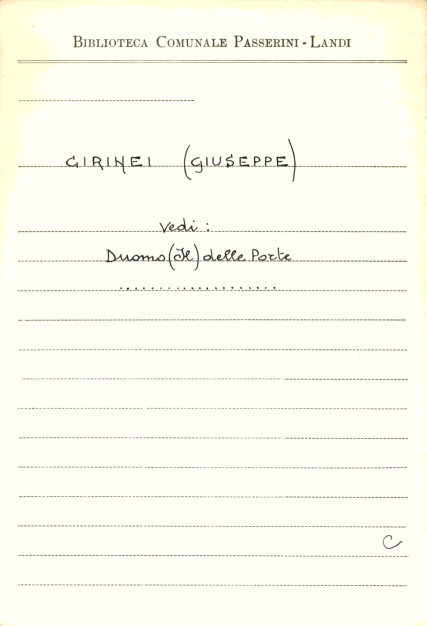 BIBLIOTECA COMUNALE PASSERINI - LANDI
GIRINEI (GIUSEPPE)
Vedi :
Duomo (Il) delle Porte
....................
C